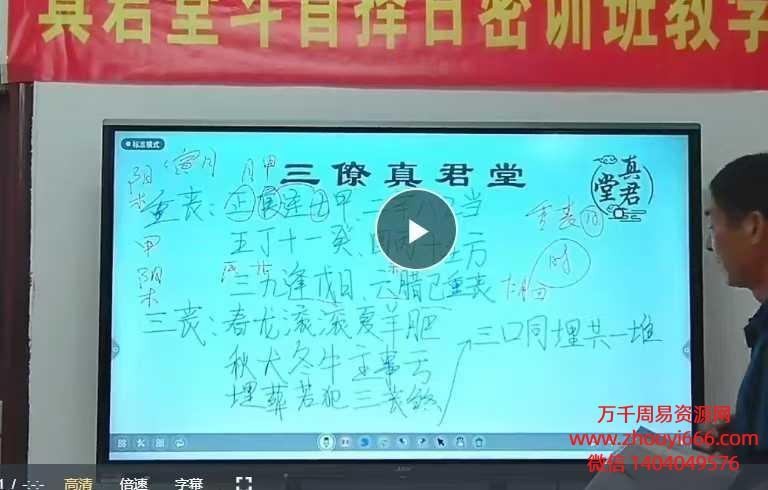 真君堂斗首择日密训班教学
标准模式
三僚真君堂
真君堂
寅月
月甲
阳木
重丧
日
时
重丧:正
甲
阳木
五丁十一癸、四丙十壬方
三九逢戊日、六腊己重丧
三丧:春龙滚滚夏羊肥
三口同埋共一堆
秋犬冬牛主事亏
埋葬若犯三丧煞
万千周易资源网
www.zhouyi666.com
微信 1404049576
1 / -:-
高清
倍速
字幕